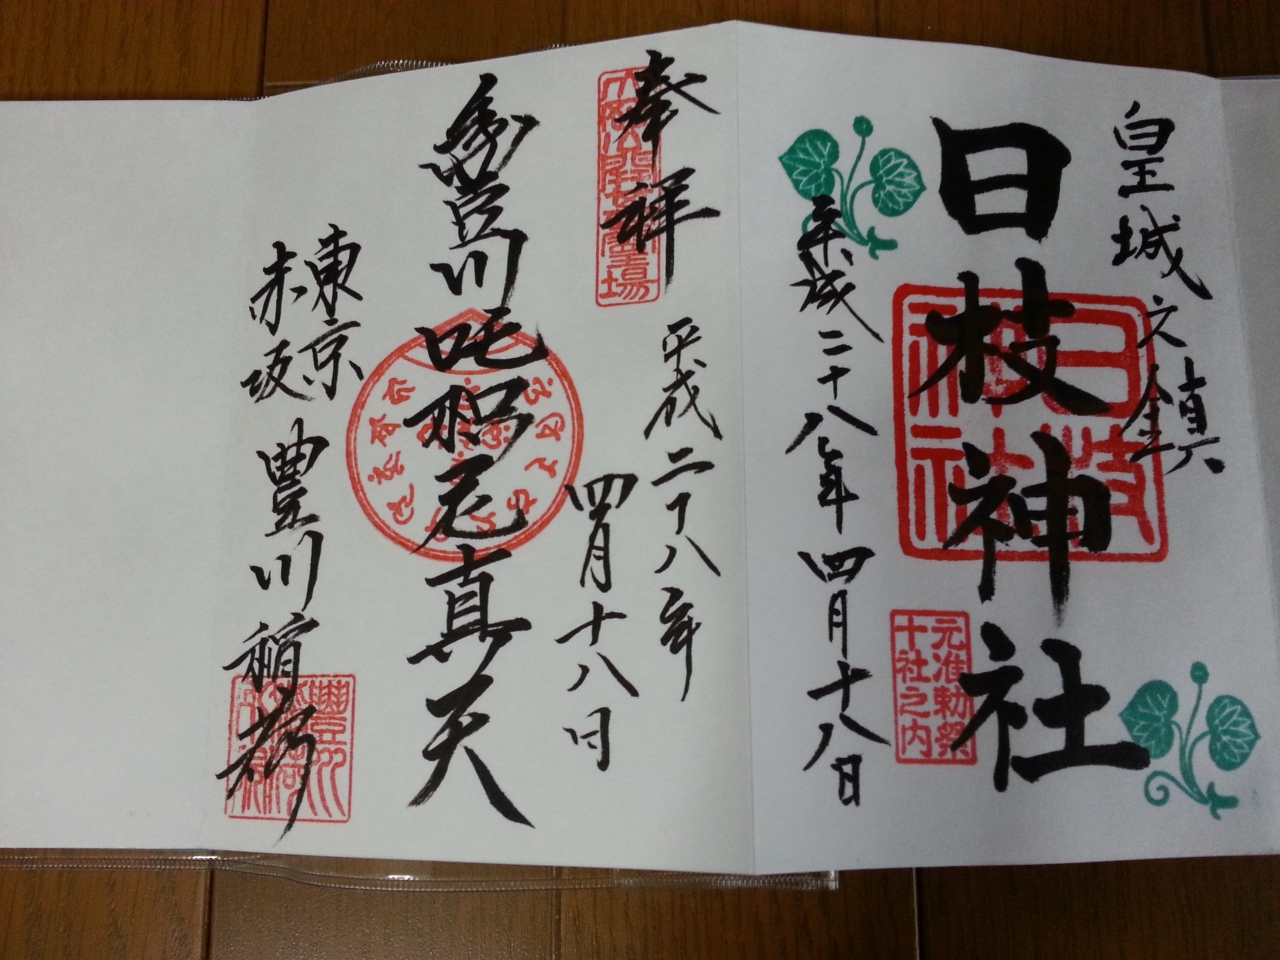 皇城之鎮
日枝神社
日枝神社
元准勅祭
十社之内
平成二十八年四月十八日
奉祥
平成二十八年
四月十八日
豊川吒枳尼真天
東京
赤坂
豊川稲荷